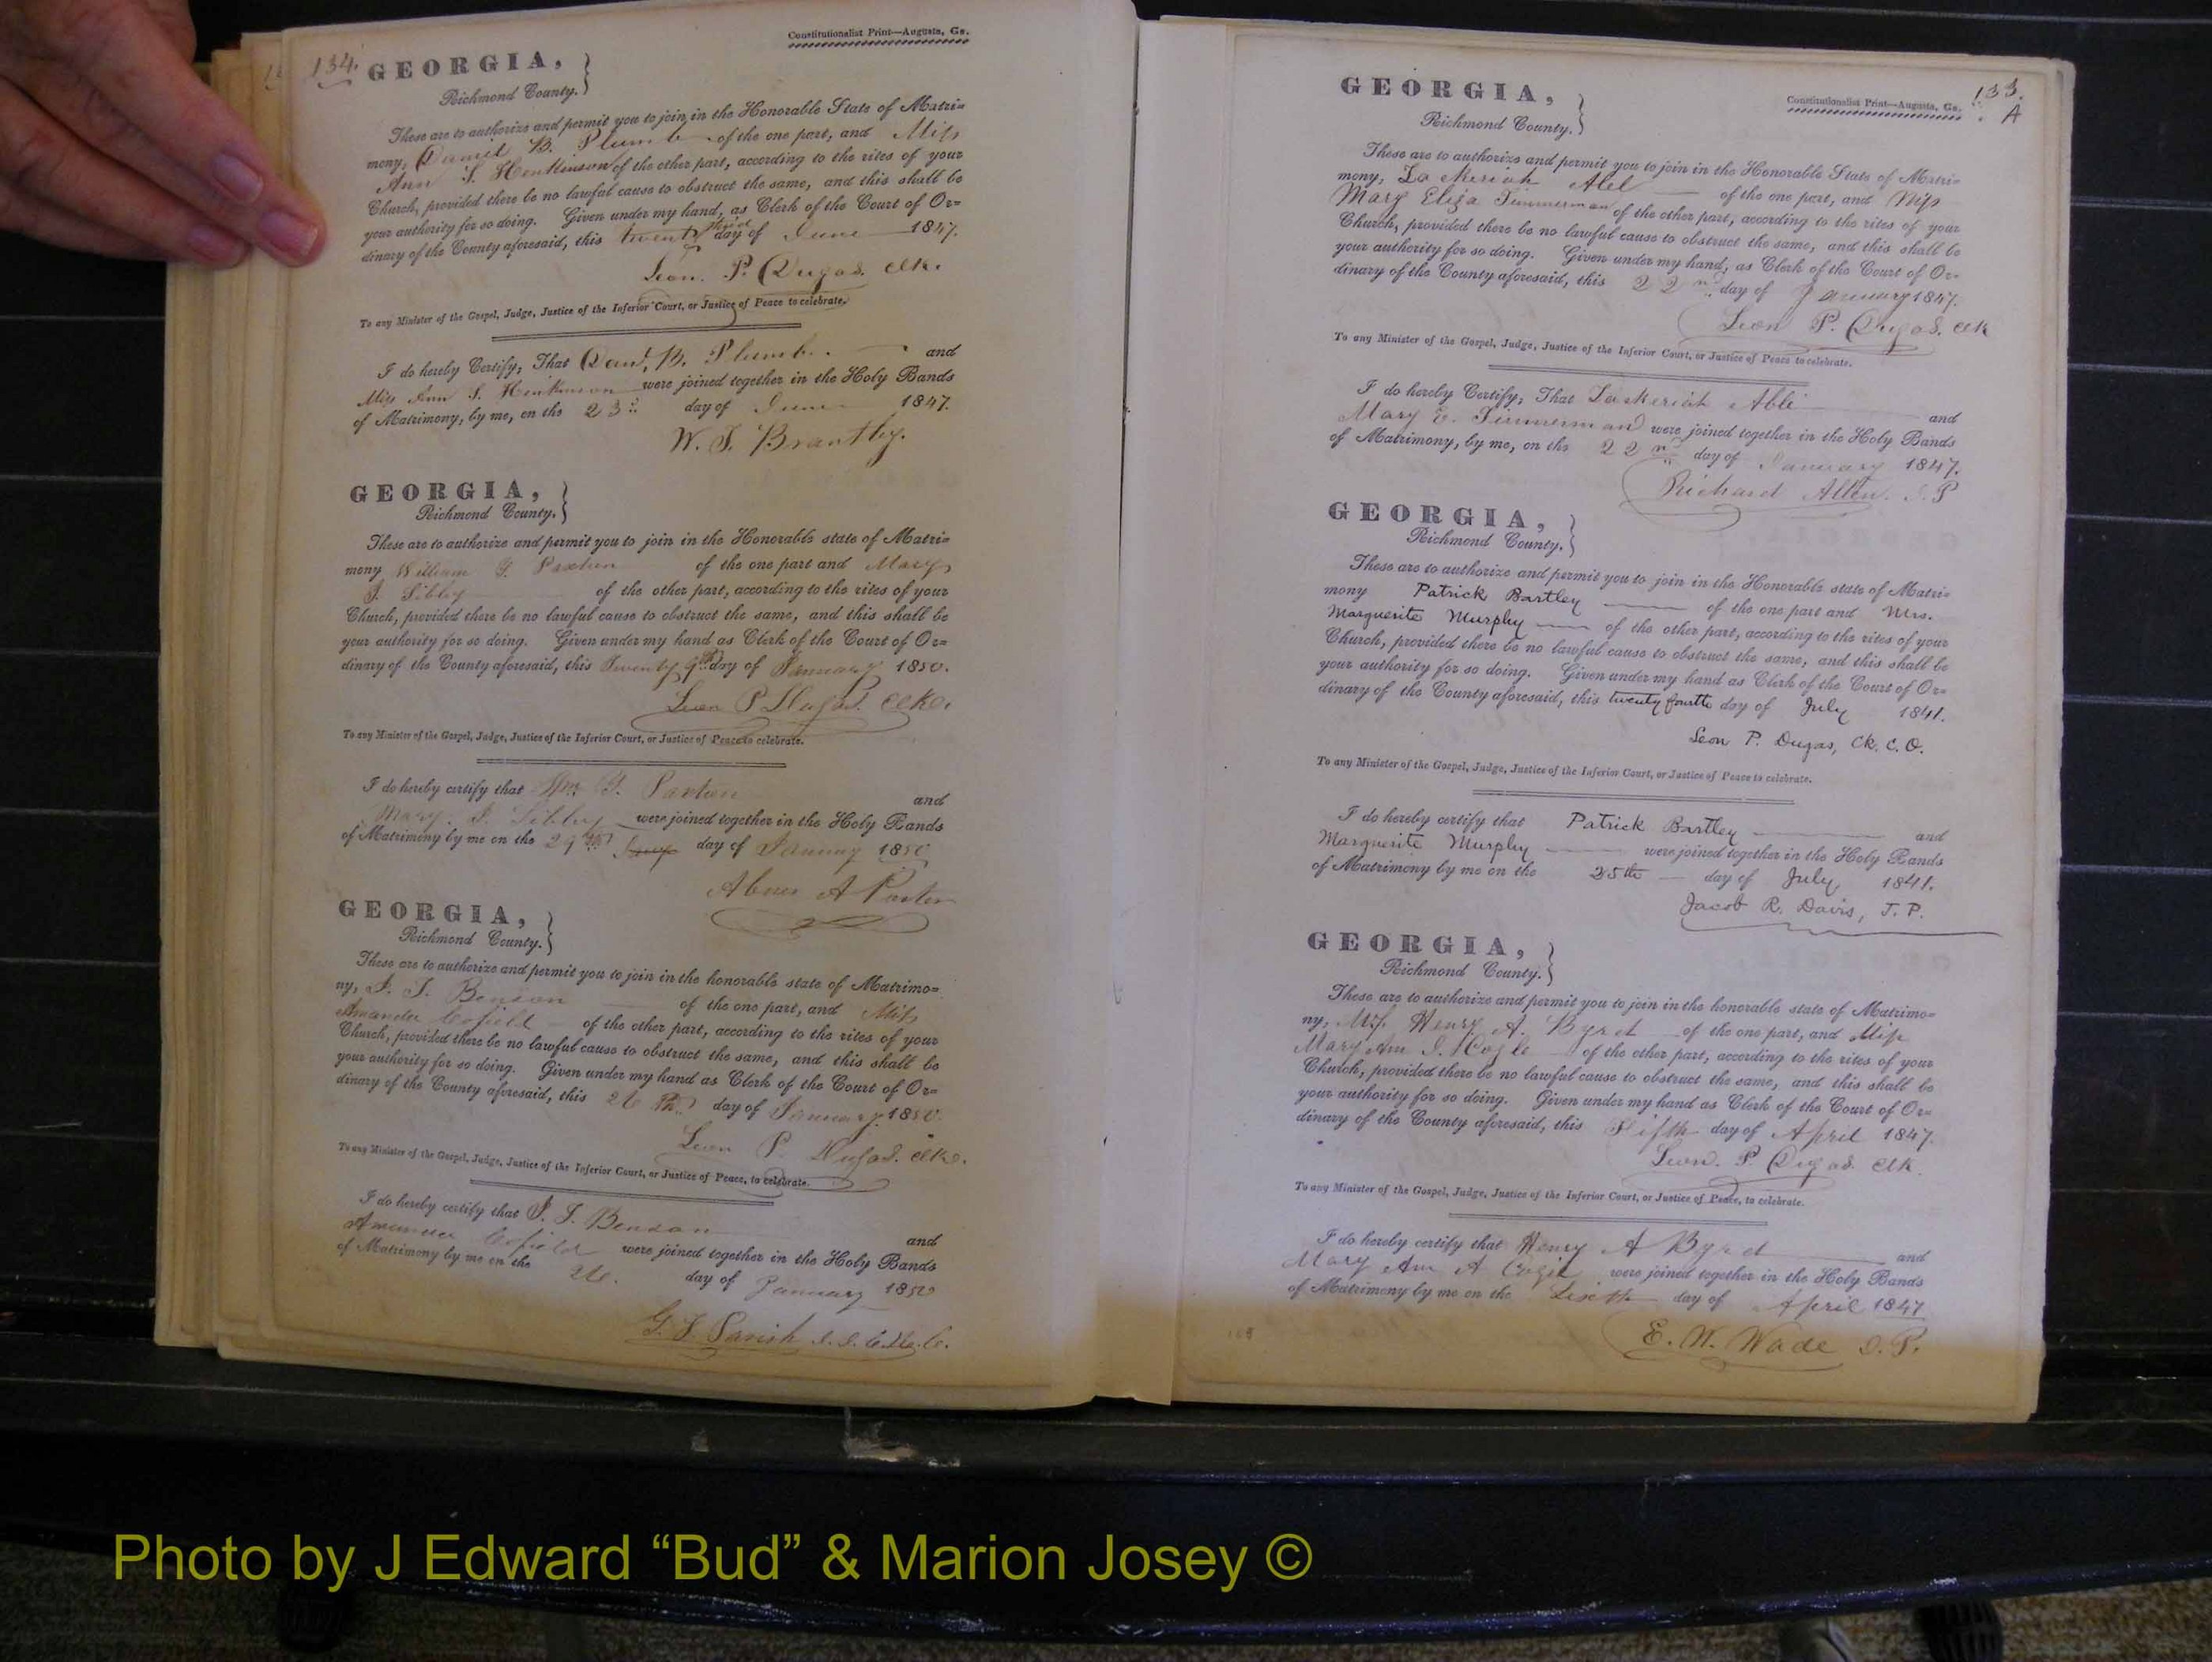 134.
Constitutionalist Print—Augusta, Ga.
GEORGIA,
Richmond County.
These are to authorize and permit you to join in the Honorable State of Matri=
mony, Daniel B. Plumb of the one part, and Miss
Ann S. of the other part, according to the rites of your
Church, provided there be no lawful cause to obstruct the same, and this shall be
your authority for so doing. Given under my hand, as Clerk of the Court of Or=
dinary of the County aforesaid, this twenty third day of June 1847.
Leon. P. Dugas. Clk.
To any Minister of the Gospel, Judge, Justice of the Inferior Court, or Justice of Peace to celebrate.
I do hereby Certify, That Danl. B. Plumb. and
Miss Ann S. were joined together in the Holy Bands
of Matrimony, by me, on the 23d day of June 1847.
W. T. Brantly.
GEORGIA,
Richmond County.
These are to authorize and permit you to join in the Honorable state of Matri=
mony William G. Paxton of the one part and Mary
J. Sibley of the other part, according to the rites of your
Church, provided there be no lawful cause to obstruct the same, and this shall be
your authority for so doing. Given under my hand as Clerk of the Court of Or=
dinary of the County aforesaid, this Twenty 9th day of January 1850.
Leon P Dugas. Clk.
To any Minister of the Gospel, Judge, Justice of the Inferior Court, or Justice of Peace to celebrate.
I do hereby certify that Wm. G. Paxton and
Mary. J. Sibley were joined together in the Holy Bands
of Matrimony by me on the 29th day of January 1850
Abner A Porter
GEORGIA,
Richmond County.
These are to authorize and permit you to join in the honorable state of Matrimo=
ny, Benson of the one part, and Miss
Amanda Cofield of the other part, according to the rites of your
Church, provided there be no lawful cause to obstruct the same, and this shall be
your authority for so doing. Given under my hand as Clerk of the Court of Or=
dinary of the County aforesaid, this 26th day of January 1850.
Leon P. Dugas. Clk.
To any Minister of the Gospel, Judge, Justice of the Inferior Court, or Justice of Peace, to celebrate.
I do hereby certify that Benson and
Amanda Cofield were joined together in the Holy Bands
of Matrimony by me on the 26. day of January 1850
G. Parish
133.
A
Constitutionalist Print—Augusta, Ga.
GEORGIA,
Richmond County.
These are to authorize and permit you to join in the Honorable State of Matri=
mony, Abel of the one part, and Miss
Mary Eliza Timmerman of the other part, according to the rites of your
Church, provided there be no lawful cause to obstruct the same, and this shall be
your authority for so doing. Given under my hand, as Clerk of the Court of Or=
dinary of the County aforesaid, this 22nd day of January 1847.
Leon P. Dugas. Clk
To any Minister of the Gospel, Judge, Justice of the Inferior Court, or Justice of Peace to celebrate.
I do hereby Certify, That Able and
Mary E. Timmerman were joined together in the Holy Bands
of Matrimony, by me, on the 22nd day of January 1847.
Richard Allen. J.P
GEORGIA,
Richmond County.
These are to authorize and permit you to join in the Honorable state of Matri=
mony Patrick Bartley of the one part and Mrs.
Marguerite Murphy of the other part, according to the rites of your
Church, provided there be no lawful cause to obstruct the same, and this shall be
your authority for so doing. Given under my hand as Clerk of the Court of Or=
dinary of the County aforesaid, this twenty fourth day of July 1841.
Leon P. Dugas, Ck. C. O.
To any Minister of the Gospel, Judge, Justice of the Inferior Court, or Justice of Peace to celebrate.
I do hereby certify that Patrick Bartley and
Marguerite Murphy were joined together in the Holy Bands
of Matrimony by me on the 25th day of July, 1841.
Jacob R. Davis, J. P.
GEORGIA,
Richmond County.
These are to authorize and permit you to join in the honorable state of Matrimo=
ny, Henry A. Byrd of the one part, and Miss
Mary Ann of the other part, according to the rites of your
Church, provided there be no lawful cause to obstruct the same, and this shall be
your authority for so doing. Given under my hand as Clerk of the Court of Or=
dinary of the County aforesaid, this Fifth day of April 1847.
Leon. P. Dugas. Clk.
To any Minister of the Gospel, Judge, Justice of the Inferior Court, or Justice of Peace, to celebrate.
I do hereby certify that Henry A Byrd and
Mary Ann A were joined together in the Holy Bands
of Matrimony by me on the Sixth day of April 1847
E. W. Wade J.P.
Photo by J Edward “Bud” & Marion Josey ©